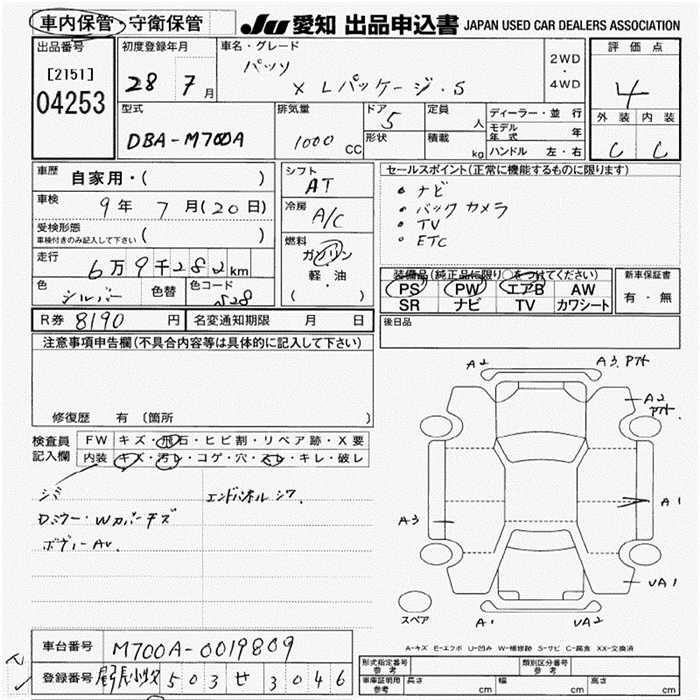 車内保管・守衛保管
JU 愛知 出品申込書 JAPAN USED CAR DEALERS ASSOCIATION
出品番号
[2151]
04253
初度登録年月
28 7月
車名・グレード
パッソ
X Lパッケージ・S
2WD
・
4WD
評価点
4
外装 内装
C C
型式
DBA-M700A
排気量
1000 CC
ドア
5
形状
定員 人
積載 kg
ディーラー・並行
モデル年式 年
ハンドル 左・右
車歴
自家用・( )
車検
9年 7月(20日)
受検形態
車検付きのみ記入して下さい ( )
走行
6万9千282km
色
シルバー
色替
色コード
S28
シフト
AT
冷房
A/C
燃料
ガソリン
軽油
( )
セールスポイント(正常に機能するものに限ります)
• ナビ
• バックカメラ
• TV
• ETC
装備品(純正品に限り○をつけてください)
PS PW エアB AW
SR ナビ TV カワシート
新車保証書
有・無
R券 8190 円
名変通知期限 月 日
後日品
注意事項申告欄(不具合内容等は具体的に記入して下さい)
修復歴 有 (箇所 )
検査員記入欄
FW キズ・飛石・ヒビ割・リペア跡・X要
内装 キズ・汚レ・コゲ・穴・スレ・キレ・破レ
シミ
エンドパネル シワ.
Dミラー・Wカバーキズ
ボディーAU.
A2
A3. Pアト
A2
Pアト.
A1
A3
UA1
A1
UA2
スペア
A-キズ E-エクボ U-凹み W-補修跡 S-サビ C-腐食 XX-交換済
車台番号 M700A-0019809
登録番号 503 せ 3046
形式指定番号
参考
類別区分番号
参考
車庫証明用
参考
長さ cm
幅 cm
高さ cm